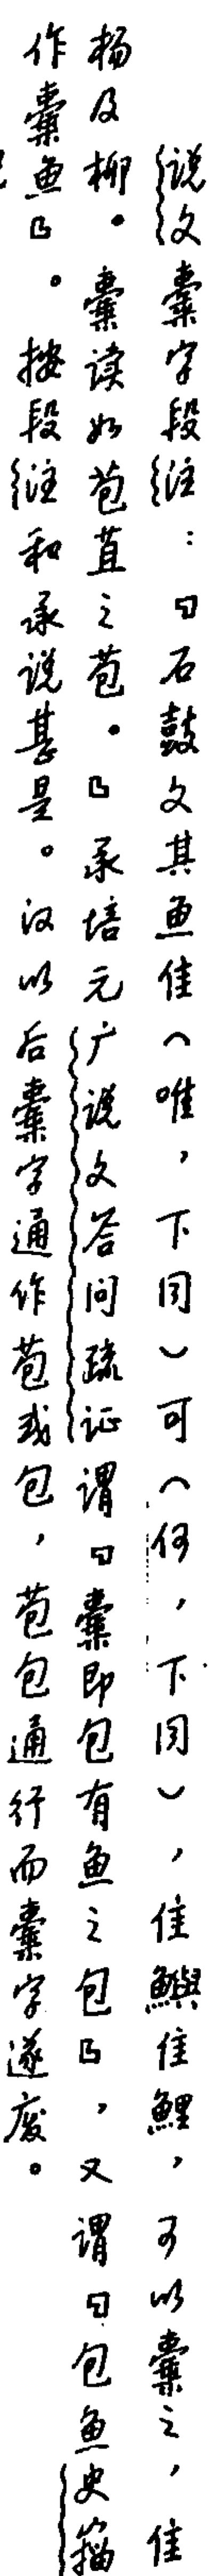 说文㯱字段注：「石鼓文其鱼隹（唯，下同）可（何，下同），隹鱮隹鯉，可以㯱之，隹
杨及柳。㯱读如苞苴之苞。」承培元广说文答问疏证谓「㯱即包有鱼之包」，又谓「包鱼史籀
作㯱鱼」。按段注和承说甚是。汉以后㯱字通作苞或包，苞包通行而㯱字遂废。